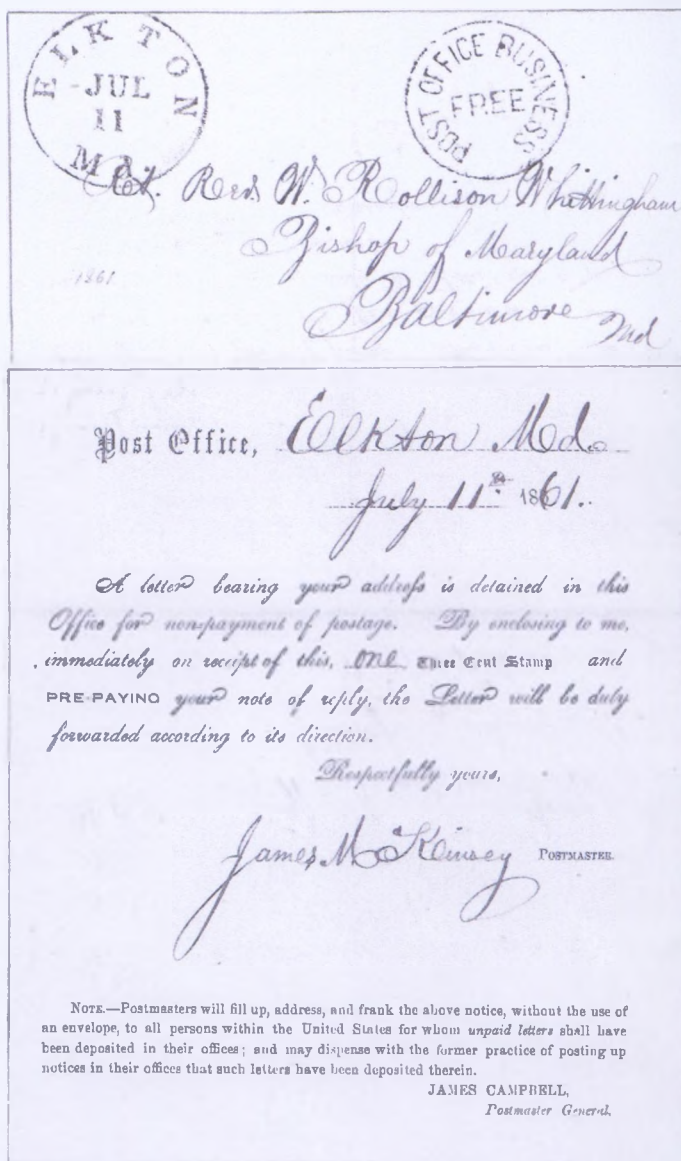 ELKTON
JUL
11
Md.
POST OFFICE BUSINESS
FREE
Rt. Revd W. Rollison Whittingham
Bishop of Maryland
1861
Baltimore
Md
Post Office, Elkton Md.
July 11th 1861.
A letter bearing your address is detained in this
Office for non-payment of postage. By enclosing to me,
immediately on receipt of this, one Three Cent Stamp and
PRE-PAYING your note of reply, the Letter will be duly
forwarded according to its direction.
Respectfully yours,
James McKinsey POSTMASTER.
NOTE.—Postmasters will fill up, address, and frank the above notice, without the use of
an envelope, to all persons within the United States for whom unpaid letters shall have
been deposited in their offices; and may dispense with the former practice of posting up
notices in their offices that such letters have been deposited therein.
JAMES CAMPBELL,
Postmaster General.